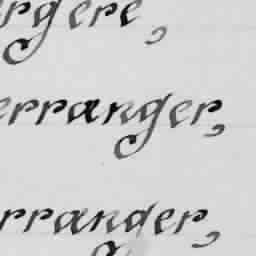 rgere,
erranger,
rranger,